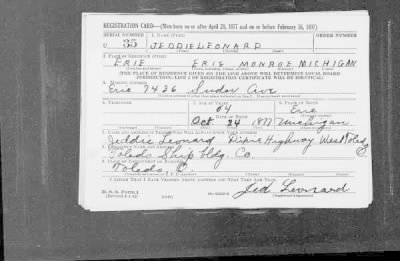 REGISTRATION CARD—(Men born on or after April 28, 1877 and on or before February 16, 1897)
SERIAL NUMBER 1. NAME (Print) ORDER NUMBER
U 35 JEDDIE LEONARD
2. PLACE OF RESIDENCE (Print)
ERIE ERIE MONROE MICHIGAN
(THE PLACE OF RESIDENCE GIVEN ON THE LINE ABOVE WILL DETERMINE LOCAL BOARD
JURISDICTION; LINE 2 OF REGISTRATION CERTIFICATE WILL BE IDENTICAL)
3. MAILING ADDRESS
Erie 7436 Suder Ave
4. TELEPHONE 5. AGE IN YEARS 6. PLACE OF BIRTH
64 Erie
DATE OF BIRTH
Oct 24 1877 Michigan
7. NAME AND ADDRESS OF PERSON WHO WILL ALWAYS KNOW YOUR ADDRESS
Jeddie Leonard Dixie Highway West Toledo O
8. EMPLOYER'S NAME AND ADDRESS
Toledo Ship bldg Co
9. PLACE OF EMPLOYMENT OR BUSINESS
Toledo O.
I AFFIRM THAT I HAVE VERIFIED ABOVE ANSWERS AND THAT THEY ARE TRUE.
D. S. S. Form 1
Jed Leonard